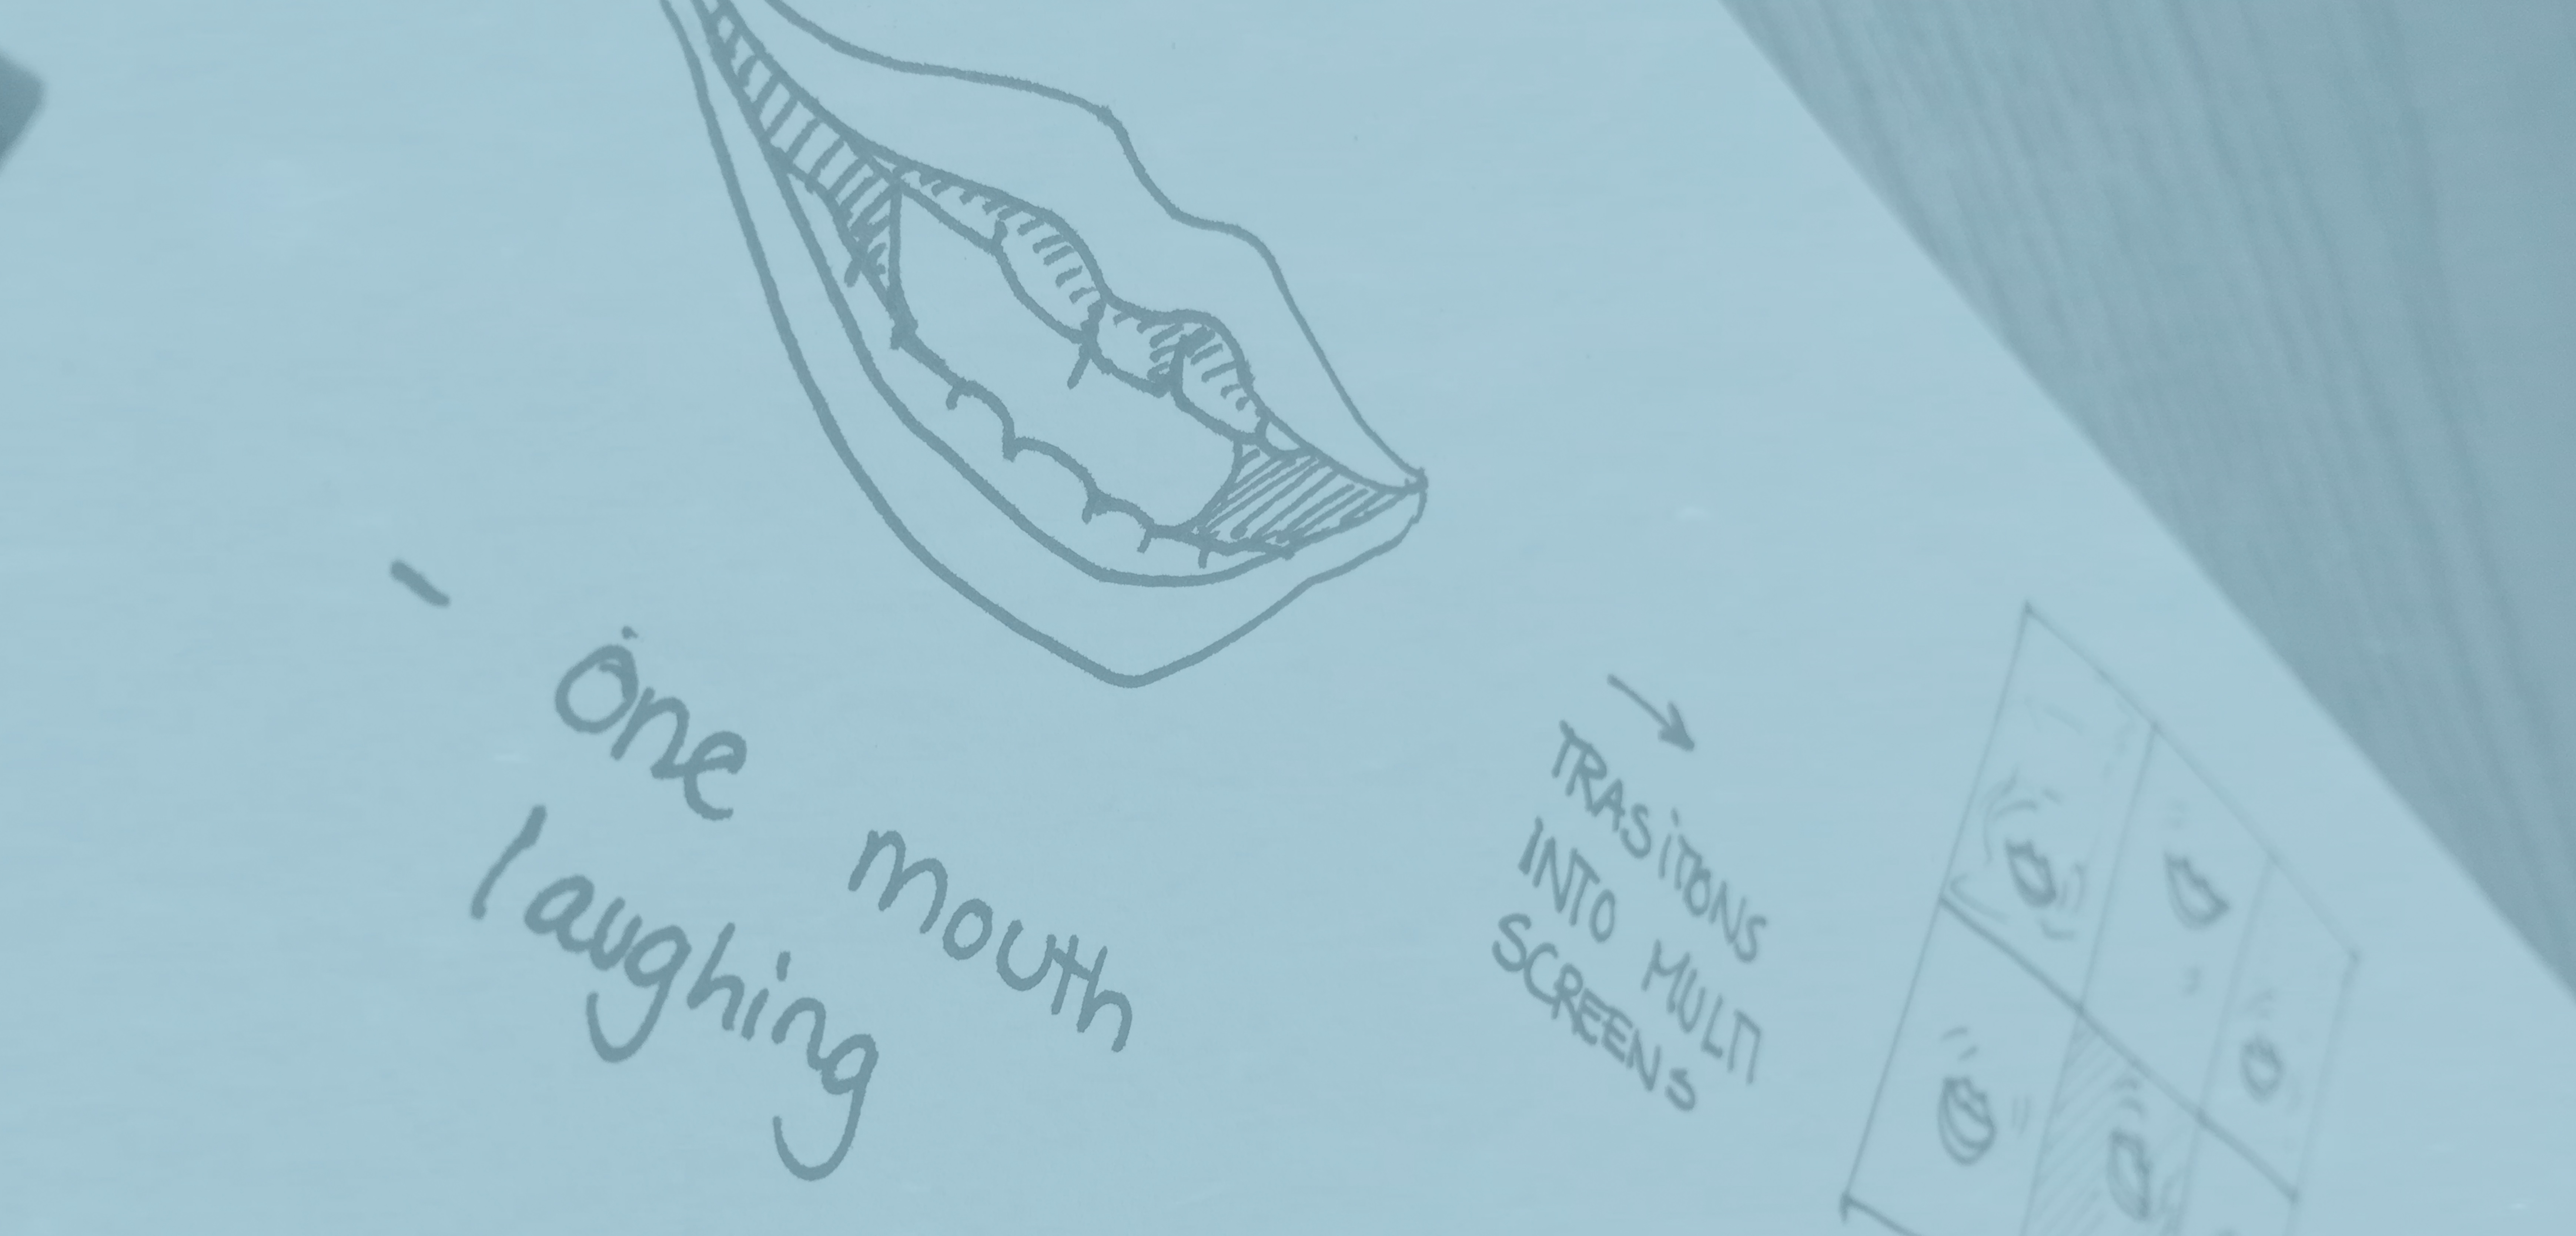 - one mouth
laughing
→ TRASITIONS
INTO MULTI
SCREENS